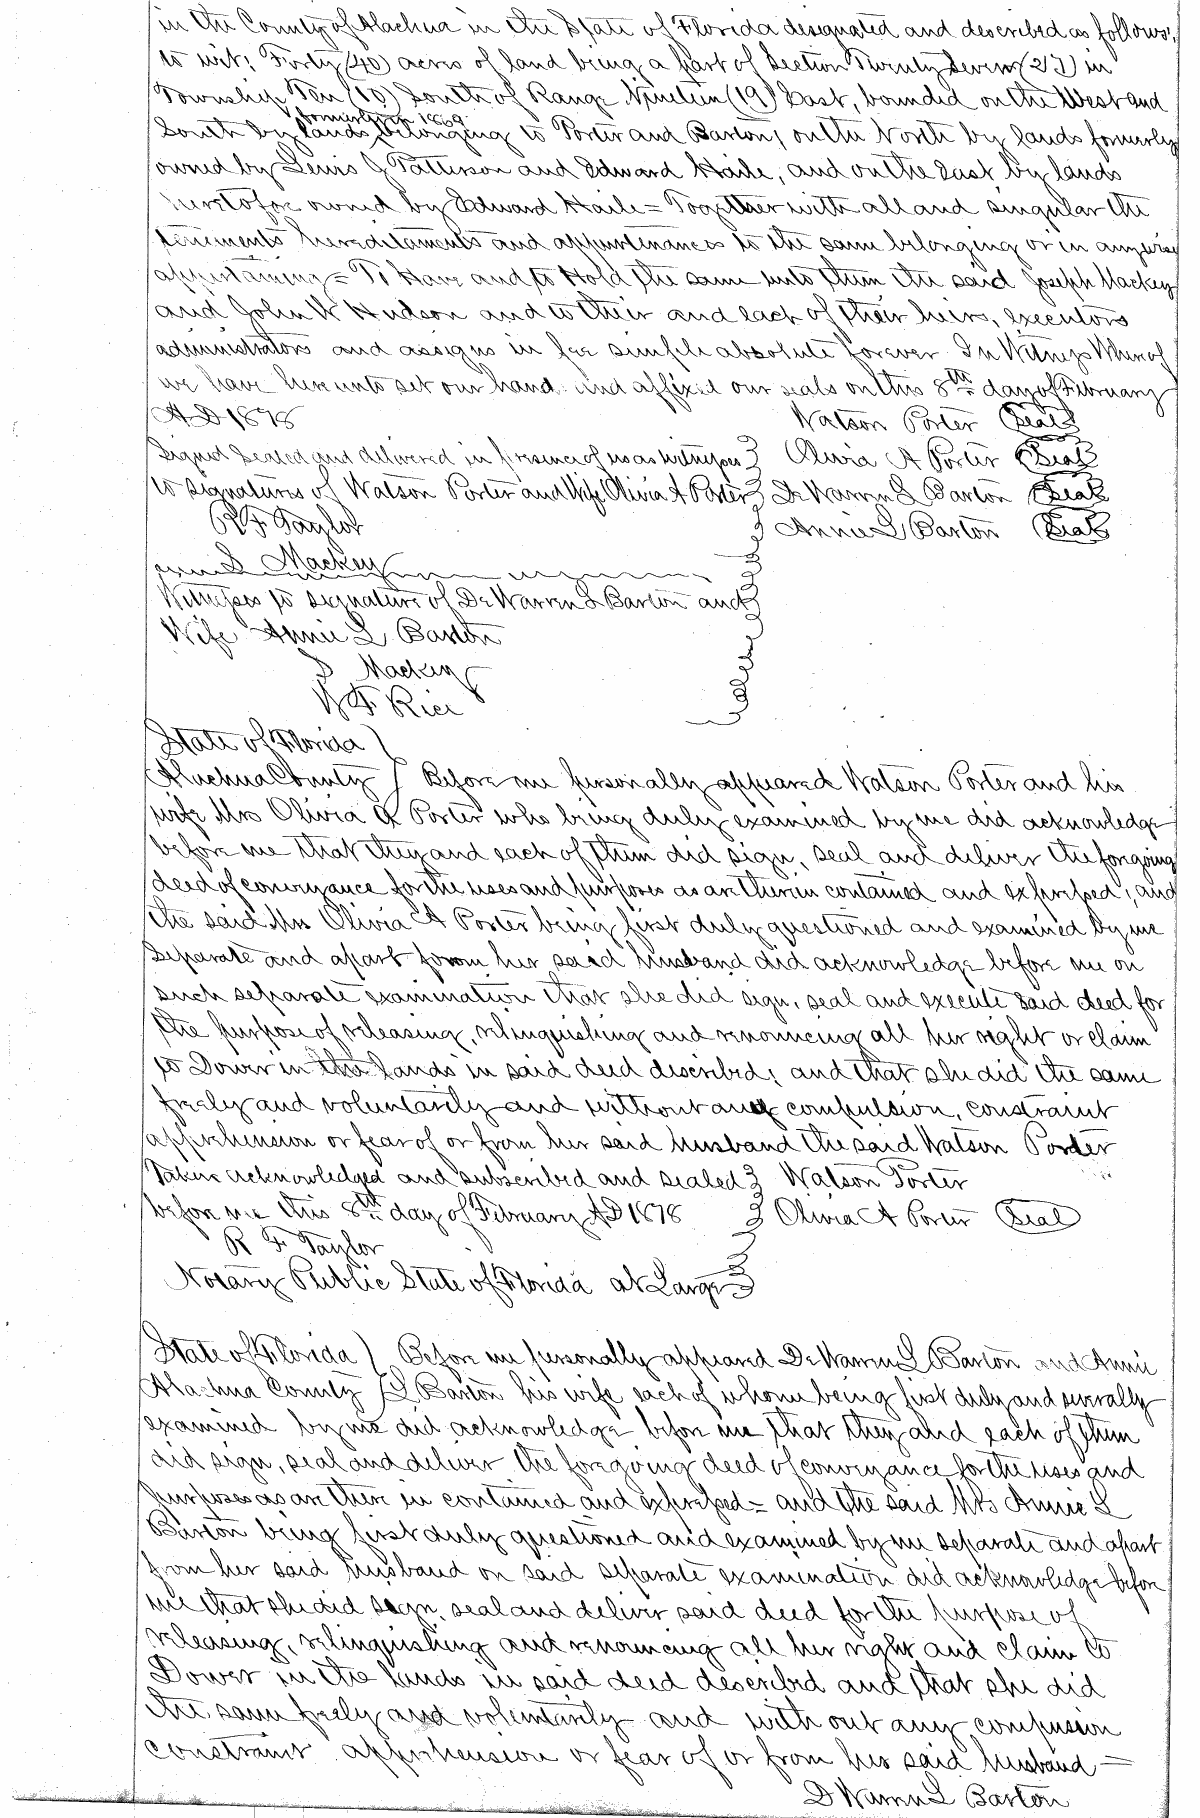 in the County of Alachua in the State of Florida designated and described as follows,
to wit; Forty (40) acres of land being a part of Section Twenty Seven (27) in
Township Ten (10) South of Range Nineteen (19) East, bounded on the West and
South by lands belonging to Porter and Barton; on the North by lands formerly
owned by Lewis J Patterson and Edward Haile, and on the East by lands
heretofore owned by Edward Haile = Together with all and singular the
tenements hereditaments and appurtenances to the same belonging or in anywise
appertaining = To Have and to Hold the same unto them the said Joseph Mackey
and John W Hudson and to their and each of their heirs, executors
administrators and assigns in fee simple absolute forever In Witness Whereof
we have hereunto set our hand and affixed our seals on this 8th day of February
AD 1878 Watson Porter (Seal)
Signed Sealed and delivered in presence of us as witnesses Olivia A Porter (Seal)
to signatures of Watson Porter and Wife Olivia A Porter DeWarren L Barton (Seal)
R F Taylor Annie L Barton (Seal)
S Mackey
Witnesses to signature of DeWarren L Barton and
Wife Annie L Barton
S Mackey
F Rice
State of Florida
Alachua County Before me personally appeared Watson Porter and his
wife Mrs Olivia A Porter who being duly examined by me did acknowledge
before me that they and each of them did sign, seal and deliver the foregoing
deed of conveyance for the uses and purposes as are therein contained and expressed; and
the said Mrs Olivia A Porter being first duly questioned and examined by me
separate and apart from her said husband did acknowledge before me on
such separate examination that she did sign, seal and execute said deed for
the purpose of releasing, relinquishing and renouncing all her right or claim
to Dower in the lands in said deed described; and that she did the same
freely and voluntarily and without any compulsion, constraint
apprehension or fear of or from her said husband the said Watson Porter
Taken acknowledged and subscribed and sealed Watson Porter
before me this 8th day of February AD 1878 Olivia A Porter (Seal)
R F Taylor
Notary Public State of Florida at Large
State of Florida ) Before me personally appeared DeWarren L Barton and Annie
Alachua County L Barton his wife each of whome being first duly and severally
examined by me did acknowledge before me that they and each of them
did sign, seal and deliver the foregoing deed of conveyance for the uses and
purposes as are there in contained and expressed = and the said Mrs Annie L
Barton being first duly questioned and examined by me separate and apart
from her said husband on said separate examination did acknowledge before
me that she did sign, seal and deliver said deed for the purpose of
releasing, relinquishing and renouncing all her right and claim to
Dower in the lands in said deed described and that she did
the same freely and voluntarily and with out any compusion
constraint apprehension or fear of or from her said husband =
D Warren L Barton